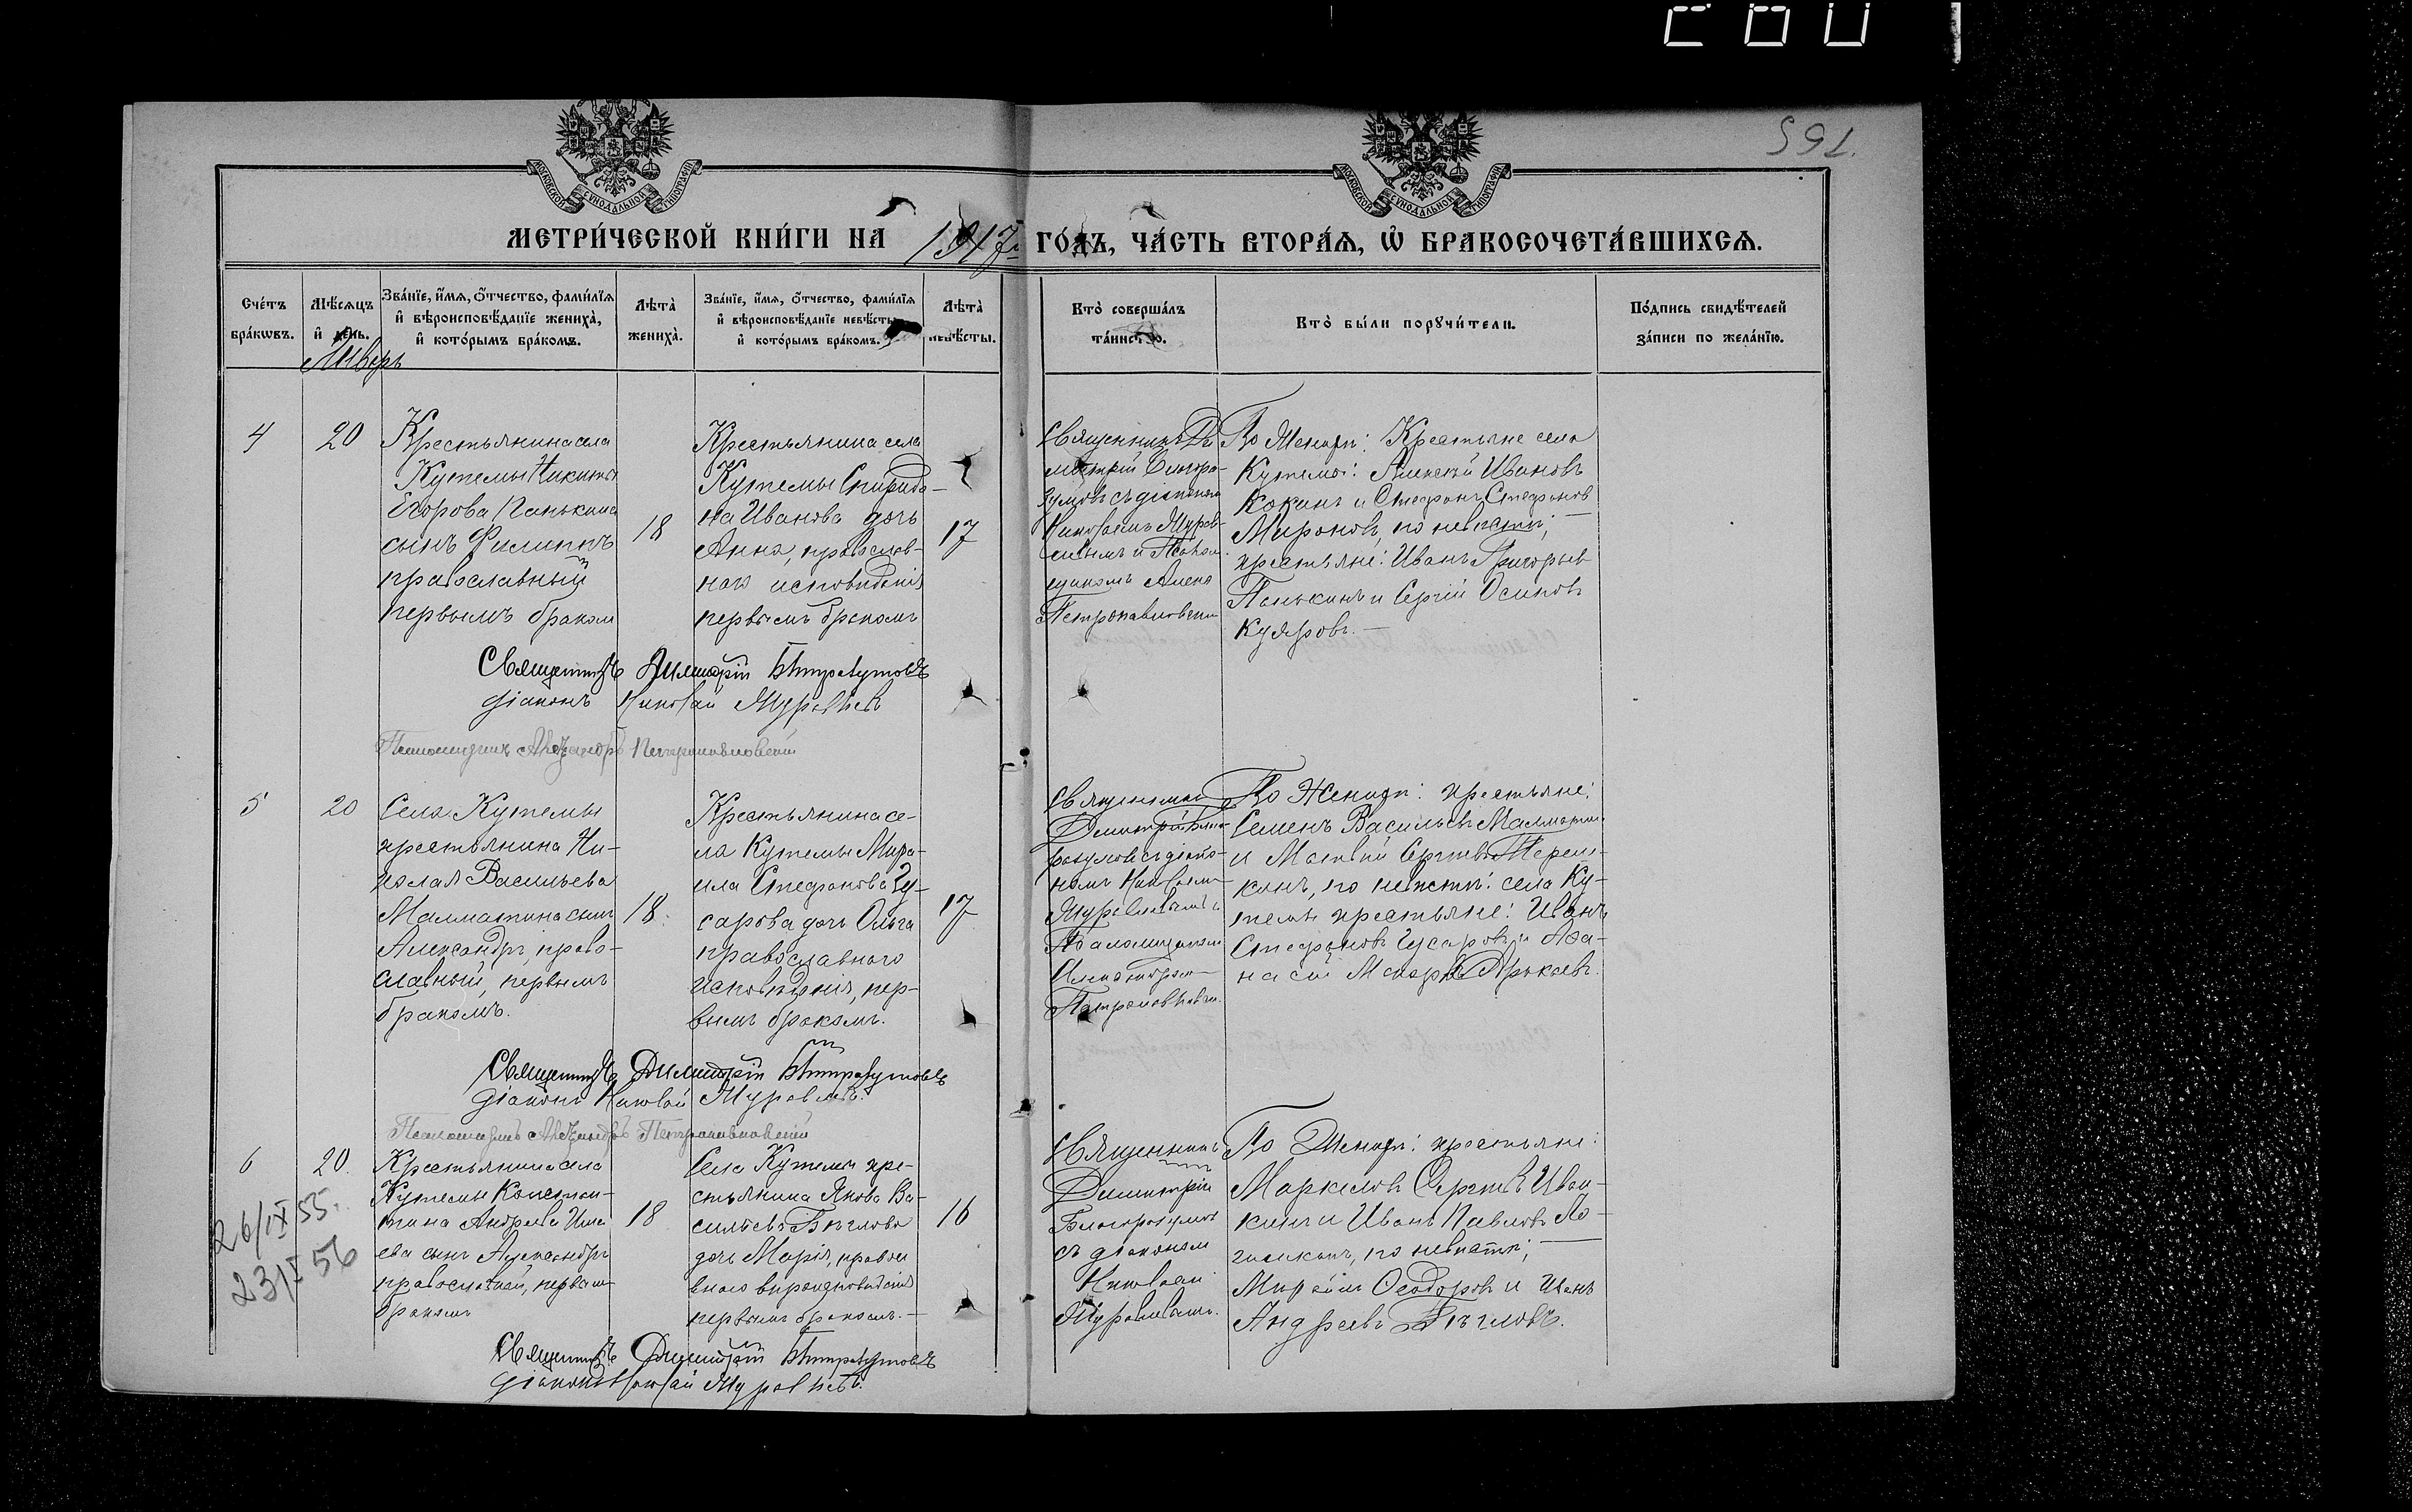 195.
МОСКОВСКОЙ СУНОДАЛЬНОЙ ТИПОГРАФІИ
МОСКОВСКОЙ СУНОДАЛЬНОЙ ТИПОГРАФІИ
МЕТРИ́ЧЕСКОЙ КНИ́ГИ НА 1917 ГО́ДЪ, ЧА́СТЬ ВТОРА́Ѧ, Ѡ҆ БРАКОСОЧЕТА́ВШИХСѦ.
Сче́тъ бра́кѡвъ.
Мѣ́сѧцъ и҆ де́нь.
Зва́нїе, и҆́мѧ, ѻ҆́тчество, фами́лїѧ и҆ вѣроисповѣ́данїе жениха̀, и҆ кото́рымъ бра́комъ.
Лѣта̀ жениха̀.
Зва́нїе, и҆́мѧ, ѻ҆́тчество, фами́лїѧ и҆ вѣроисповѣ́данїе невѣ́сты, и҆ кото́рымъ бра́комъ.
Лѣта̀ невѣ́сты.
Кто̀ соверша́лъ та́инство.
Кто̀ бы́ли порꙋчи́тели.
По́дпись свидѣ́телей за́писи по жела́нїю.
Январь
4
20
Крестьянина села
Кутемы Никиты
Егорова Панькина
сынъ Филиппъ
православный
первымъ бракомъ
18
Крестьянина села
Кутемы Спиридо-
на Иванова дочь
Анна, православ-
наго исповѣданія
первымъ бракомъ
17
Священникъ Ди
митрій Благора-
зумовъ съ діакономъ
Николаемъ Муравь-
евымъ и Псалом
щикомъ Алекс
Петропавловскимъ
По Женихѣ: Крестьяне села
Кутемы: Алексѣй Ивановъ
Коканъ и Стефанъ Стефановъ
Мироновъ, по невѣстѣ;
крестьяне: Иванъ Григорьев
Панькинъ и Сергій Осиповъ
Священникъ Димитрій Благоразумовъ
Діаконъ Николай Муравьевъ
Псаломщикъ Александръ Петропавловскій
5
20
Села Кутемы
крестьянина Ни-
колая Васильева
Малмакина сынъ
Александръ, право-
славный, первымъ
бракомъ.
18.
Крестьянина се-
ла Кутемы Миха-
ила Стефанова Гу-
сарова дочь Ольга
православнаго
исповѣданія, пер-
вымъ бракомъ.
17
Священникъ
Димитрій Благо-
разумовъ съ діако-
номъ Николаемъ
Муравьевымъ и
Псаломщикомъ
Александромъ
Петропавловскимъ
По Женихѣ: крестьяне:
Семенъ Васильевъ Малмакинъ
и Матвѣй Сергѣевъ
канъ, по невѣстѣ: села Ку-
темы крестьяне: Иванъ
Стефановъ Гусаровъ и Афа-
насій Макаровъ
Священникъ Димитрій Благоразумовъ
Діаконъ Николай Муравьевъ.
Псаломщикъ Александръ Петропавловскій
6
20.
26/IX 55.
23/X 56
Крестьянина села
Кутемы Констан-
тина Андреева
ева сынъ Александръ
православный, первымъ
бракомъ
18
Села Кутемы кре-
стьянина Якова Ва-
сильева Бѣглова
дочь Марія, правосла
внаго вѣроисповѣданія
первымъ бракомъ. —
16
Священникъ
Димитрій
Благоразумовъ
съ діакономъ
Николаемъ
Муравьевымъ.
По Женихѣ: крестьяне:
Маркеловъ Сергѣевъ Иван-
кинъ и Иванъ Павловъ
по невѣстѣ;
Михаилъ Ѳеодоровъ и Иванъ
Андреевъ Бѣгловъ.
Священникъ Димитрій Благоразумовъ
Діаконъ Николай Муравьевъ.